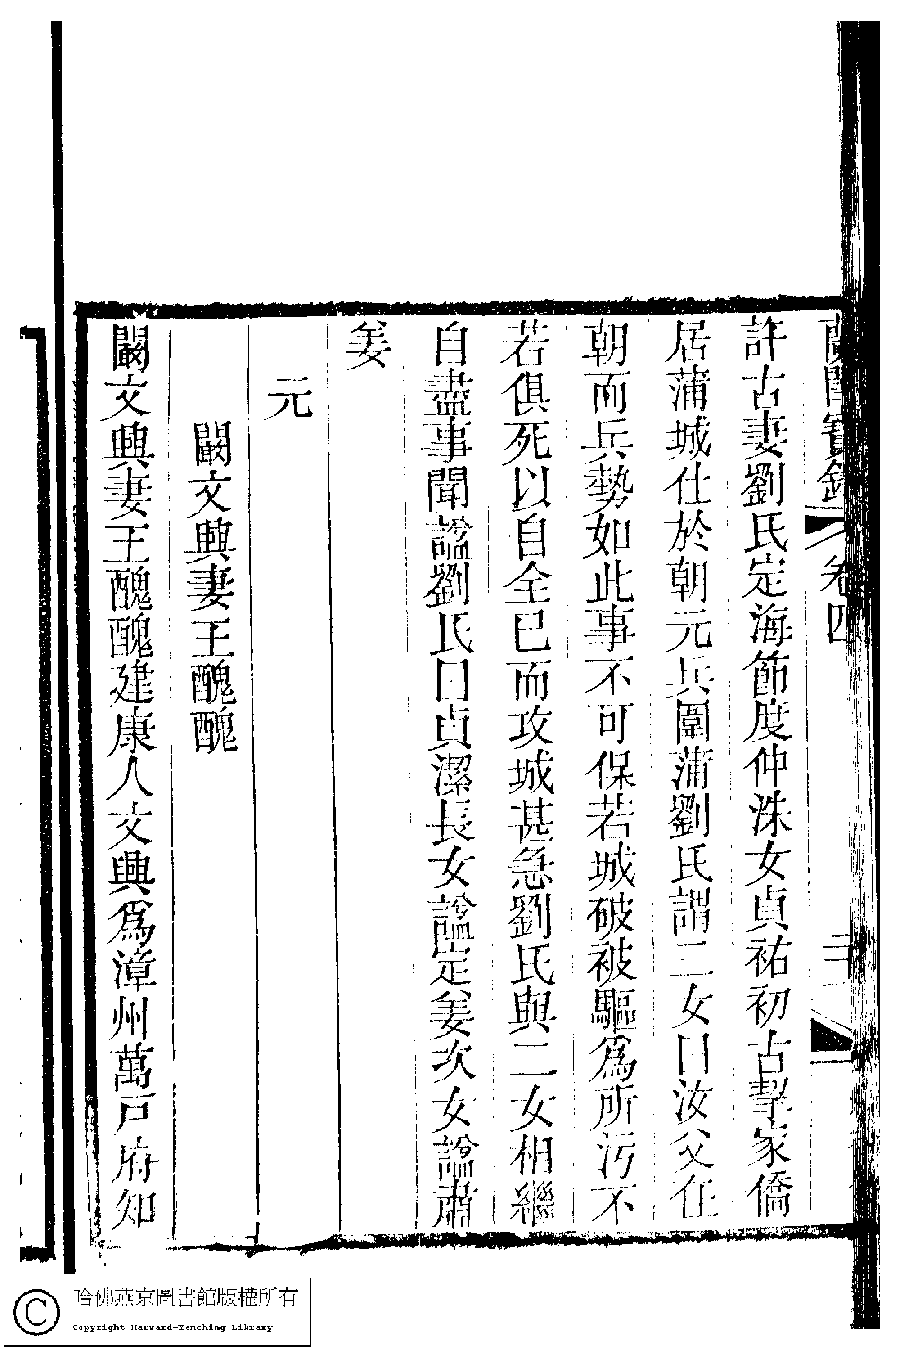 蘭閨寶錄 卷四 二
許古妻劉氏定海節度仲洙女貞祐初古挈家僑
居蒲城仕於朝元兵圍蒲劉氏謂二女曰汝父在
朝而兵勢如此事不可保若城破被驅爲所污不
若俱死以自全已而攻城甚急劉氏與二女相繼
自盡事聞諡劉氏曰貞潔長女諡定姜次女諡肅
姜
元
闞文興妻王醜醜
闞文興妻王醜醜建康人文興爲漳州萬戸府知
哈佛燕京圖書館版權所有
Copyright Harvard-Yenching Library